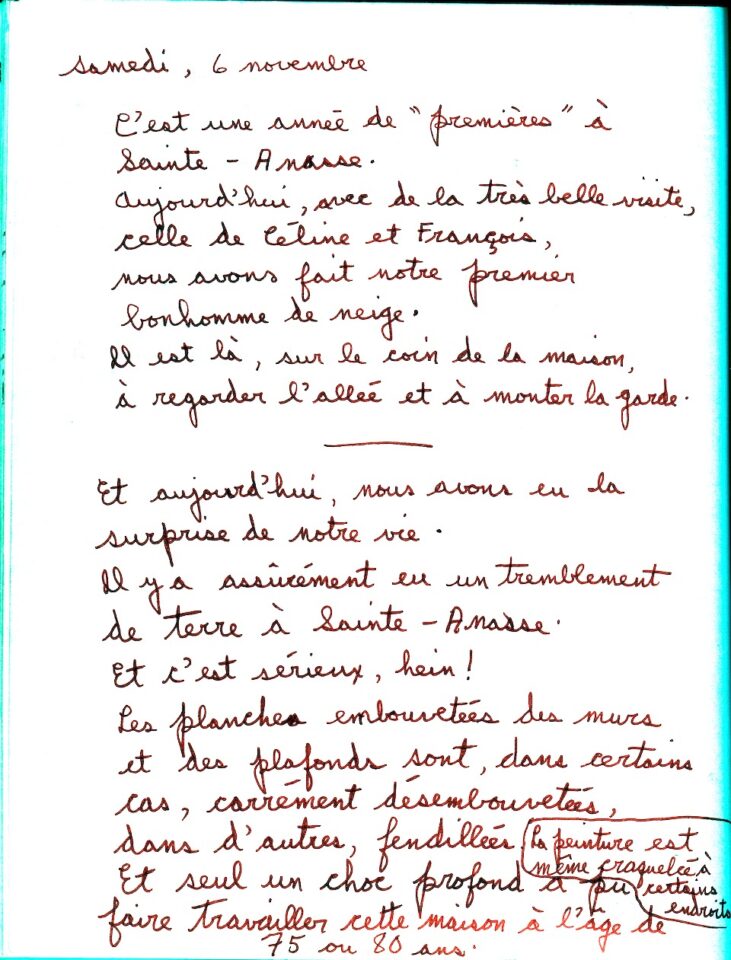 samedi, 6 novembre
C'est une année de "premières" à
Sainte-Anasse.
Aujourd'hui, avec de la très belle visite,
celle de Céline et François,
nous avons fait notre premier
bonhomme de neige.
Il est là, sur le coin de la maison,
à regarder l'alleé et à monter la garde.
Et aujourd'hui, nous avons eu la
surprise de notre vie.
Il y a assûrément eu un tremblement
de terre à Sainte-Anasse.
Et c'est sérieux, hein!
Les planches embouvetées des murs
et des plafonds sont, dans certains
cas, carrément désembouvetées,
dans d'autres, fendillées.
La peinture est
même craquelée à
certains
endroits
Et seul un choc profond a pu
faire travailler cette maison à l'âge de
75 ou 80 ans.